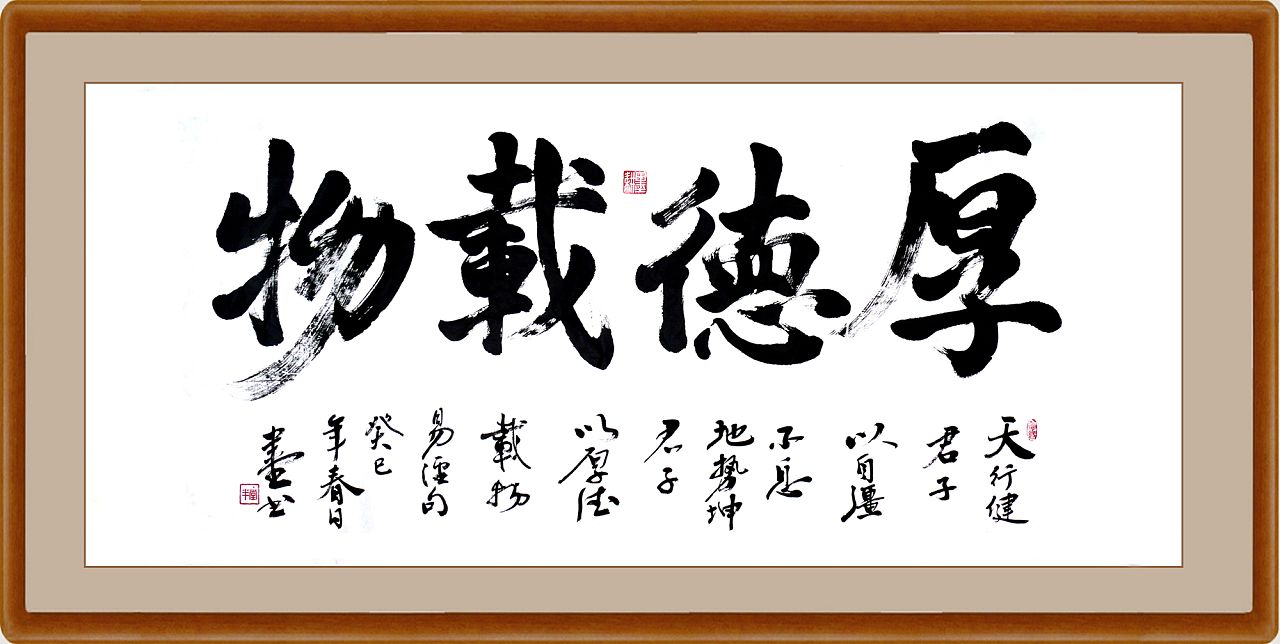 厚德載物
天行健
君子
以自彊
不息
地勢坤
君子
以厚德
載物
易經句
癸巳
年春日
書